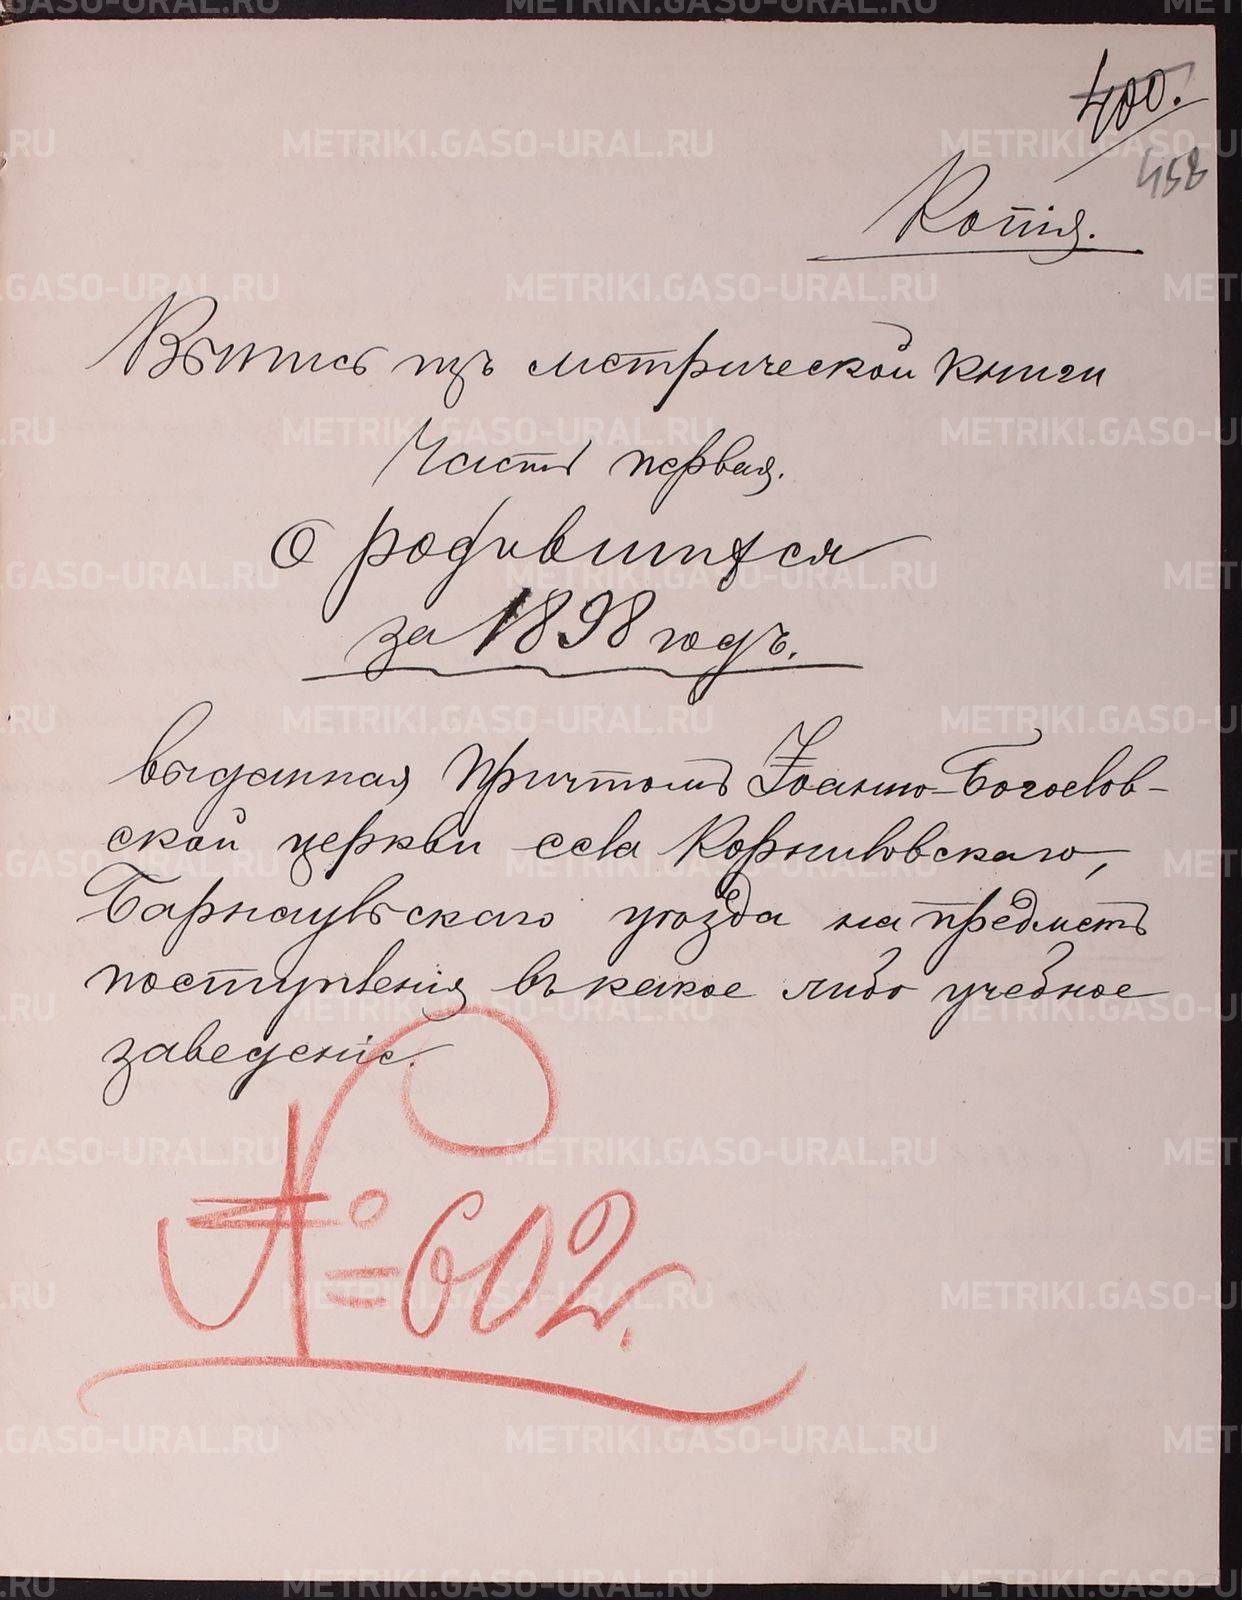 400.
458
Копія.
Выпись изъ метрической книги
Часть первая.
О родившихся
за 1898 годъ.
выданная Причтомъ Іоанно-Богослов-
ской церкви села Корниловскаго,
Барнаульскаго уѣзда на предметъ
поступленія въ какое либо учебное
заведеніе.
№=602.